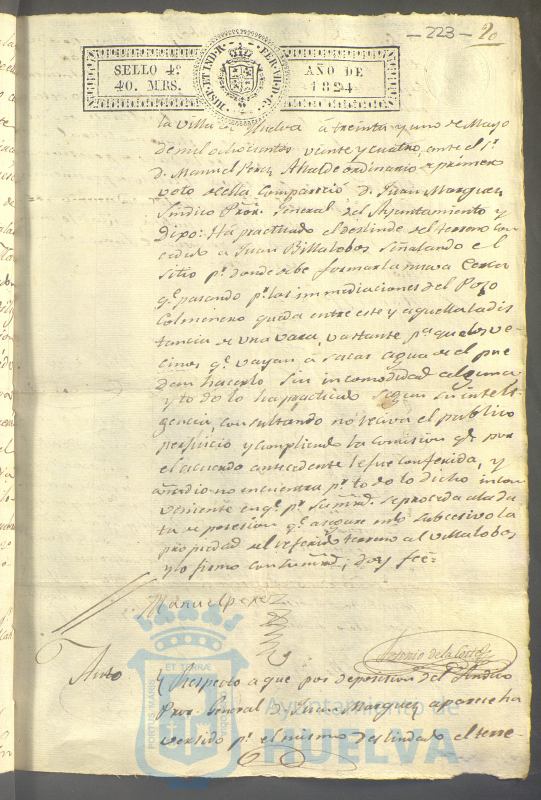 — 223 — 20
SELLO 4º
40. MRS.
HISP. ET IND. R. FER. VII. D. G.
AÑO DE
1824
la villa de Huelva á treinta y uno de Mayo
de mil ochocientos veinte y cuatro, ante el Sr.
D. Manuel Perez Alcalde ordinario de primer
voto de ella Comparecio D. Juan Marquez
Sindico Pror. General del Ayuntamiento y
Dijo: Ha practicado el deslinde del terreno con
cedido a Juan Billalobos señalando el
sitio pr. donde debe formar la nueva Cerca
qe. pasando pr. las immediaciones del Pozo
Colmenero queda entre este y aquella la dis
tancia de una vara, vastante pa. que los ve
cinos qe. vayan á sacar agua de el pue
dan hacerlo sin incomodidad alguna
y todo lo ha practicado segun su inteli
gencia, consultando no reciva el publico
perjuicio y cumpliendo la comision qe. por
el acuerdo antecedente le fue conferida, y
añadio no encuentra pr. todo lo dicho incon
veniente en qe. pr. su mrd. se proceda a la da
ta de posesion qe. asegure en lo subcesivo la
propiedad del referido terreno al Villalobos
y lo firmo con su mrd., doy fee=
Manuel perez
Antonio de la Corte
Auto
Respecto a que por deposicion del Sindico
Pror. General D. Juan Marquez aparece ha
verside pr. el mismo deslindado el terre-
PORTUS MARIS ET TERRAE CUSTODIA
Ayuntamiento de
HUELVA